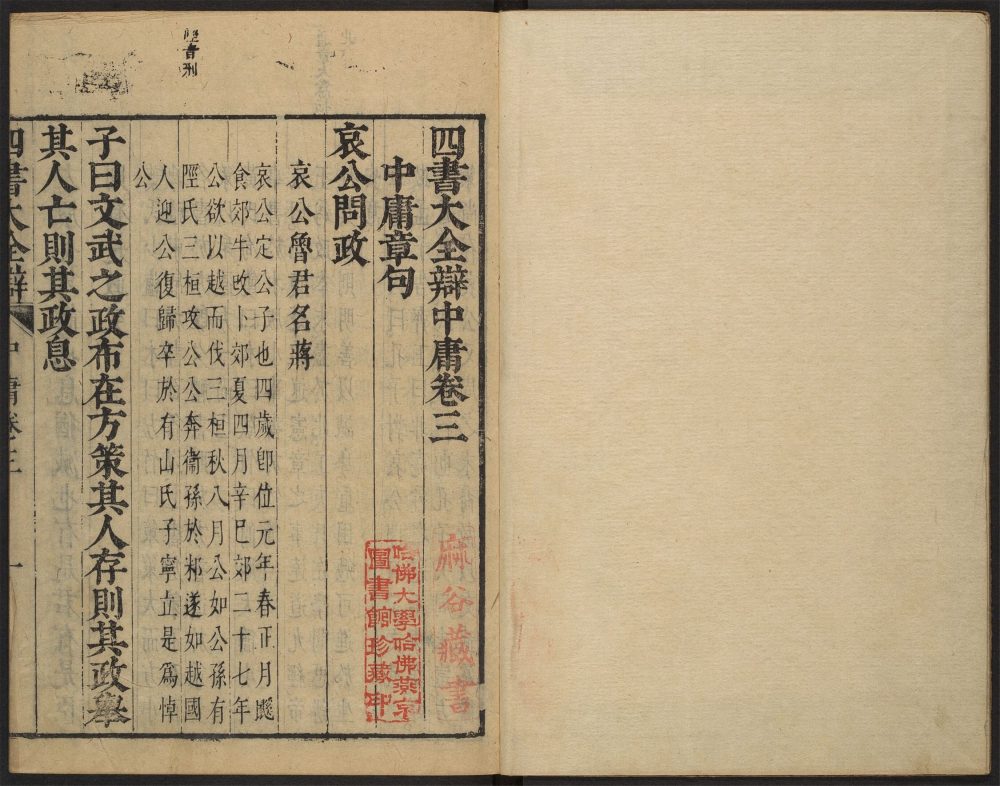 四書大全辯中庸卷三
中庸章句
哀公問政
哀公魯君名蔣
哀公定公子也四歲即位元年春正月鼷
食郊牛改卜郊夏四月辛巳郊二十七年
公欲以越而伐三桓秋八月公如公孫有
陘氏三桓攻公公奔衞孫於邾遂如越國
人迎公復歸卒於有山氏子寧立是爲悼
公
子曰文武之政布在方策其人存則其政舉
其人亡則其政息
四書大全辯
中庸卷三
一
麻谷藏書
哈佛大學哈佛燕京
圖書館珍藏印